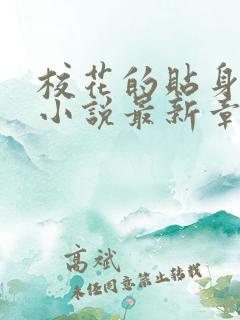 校花的貼身
小說最新章
高斌
未经同意禁止转载